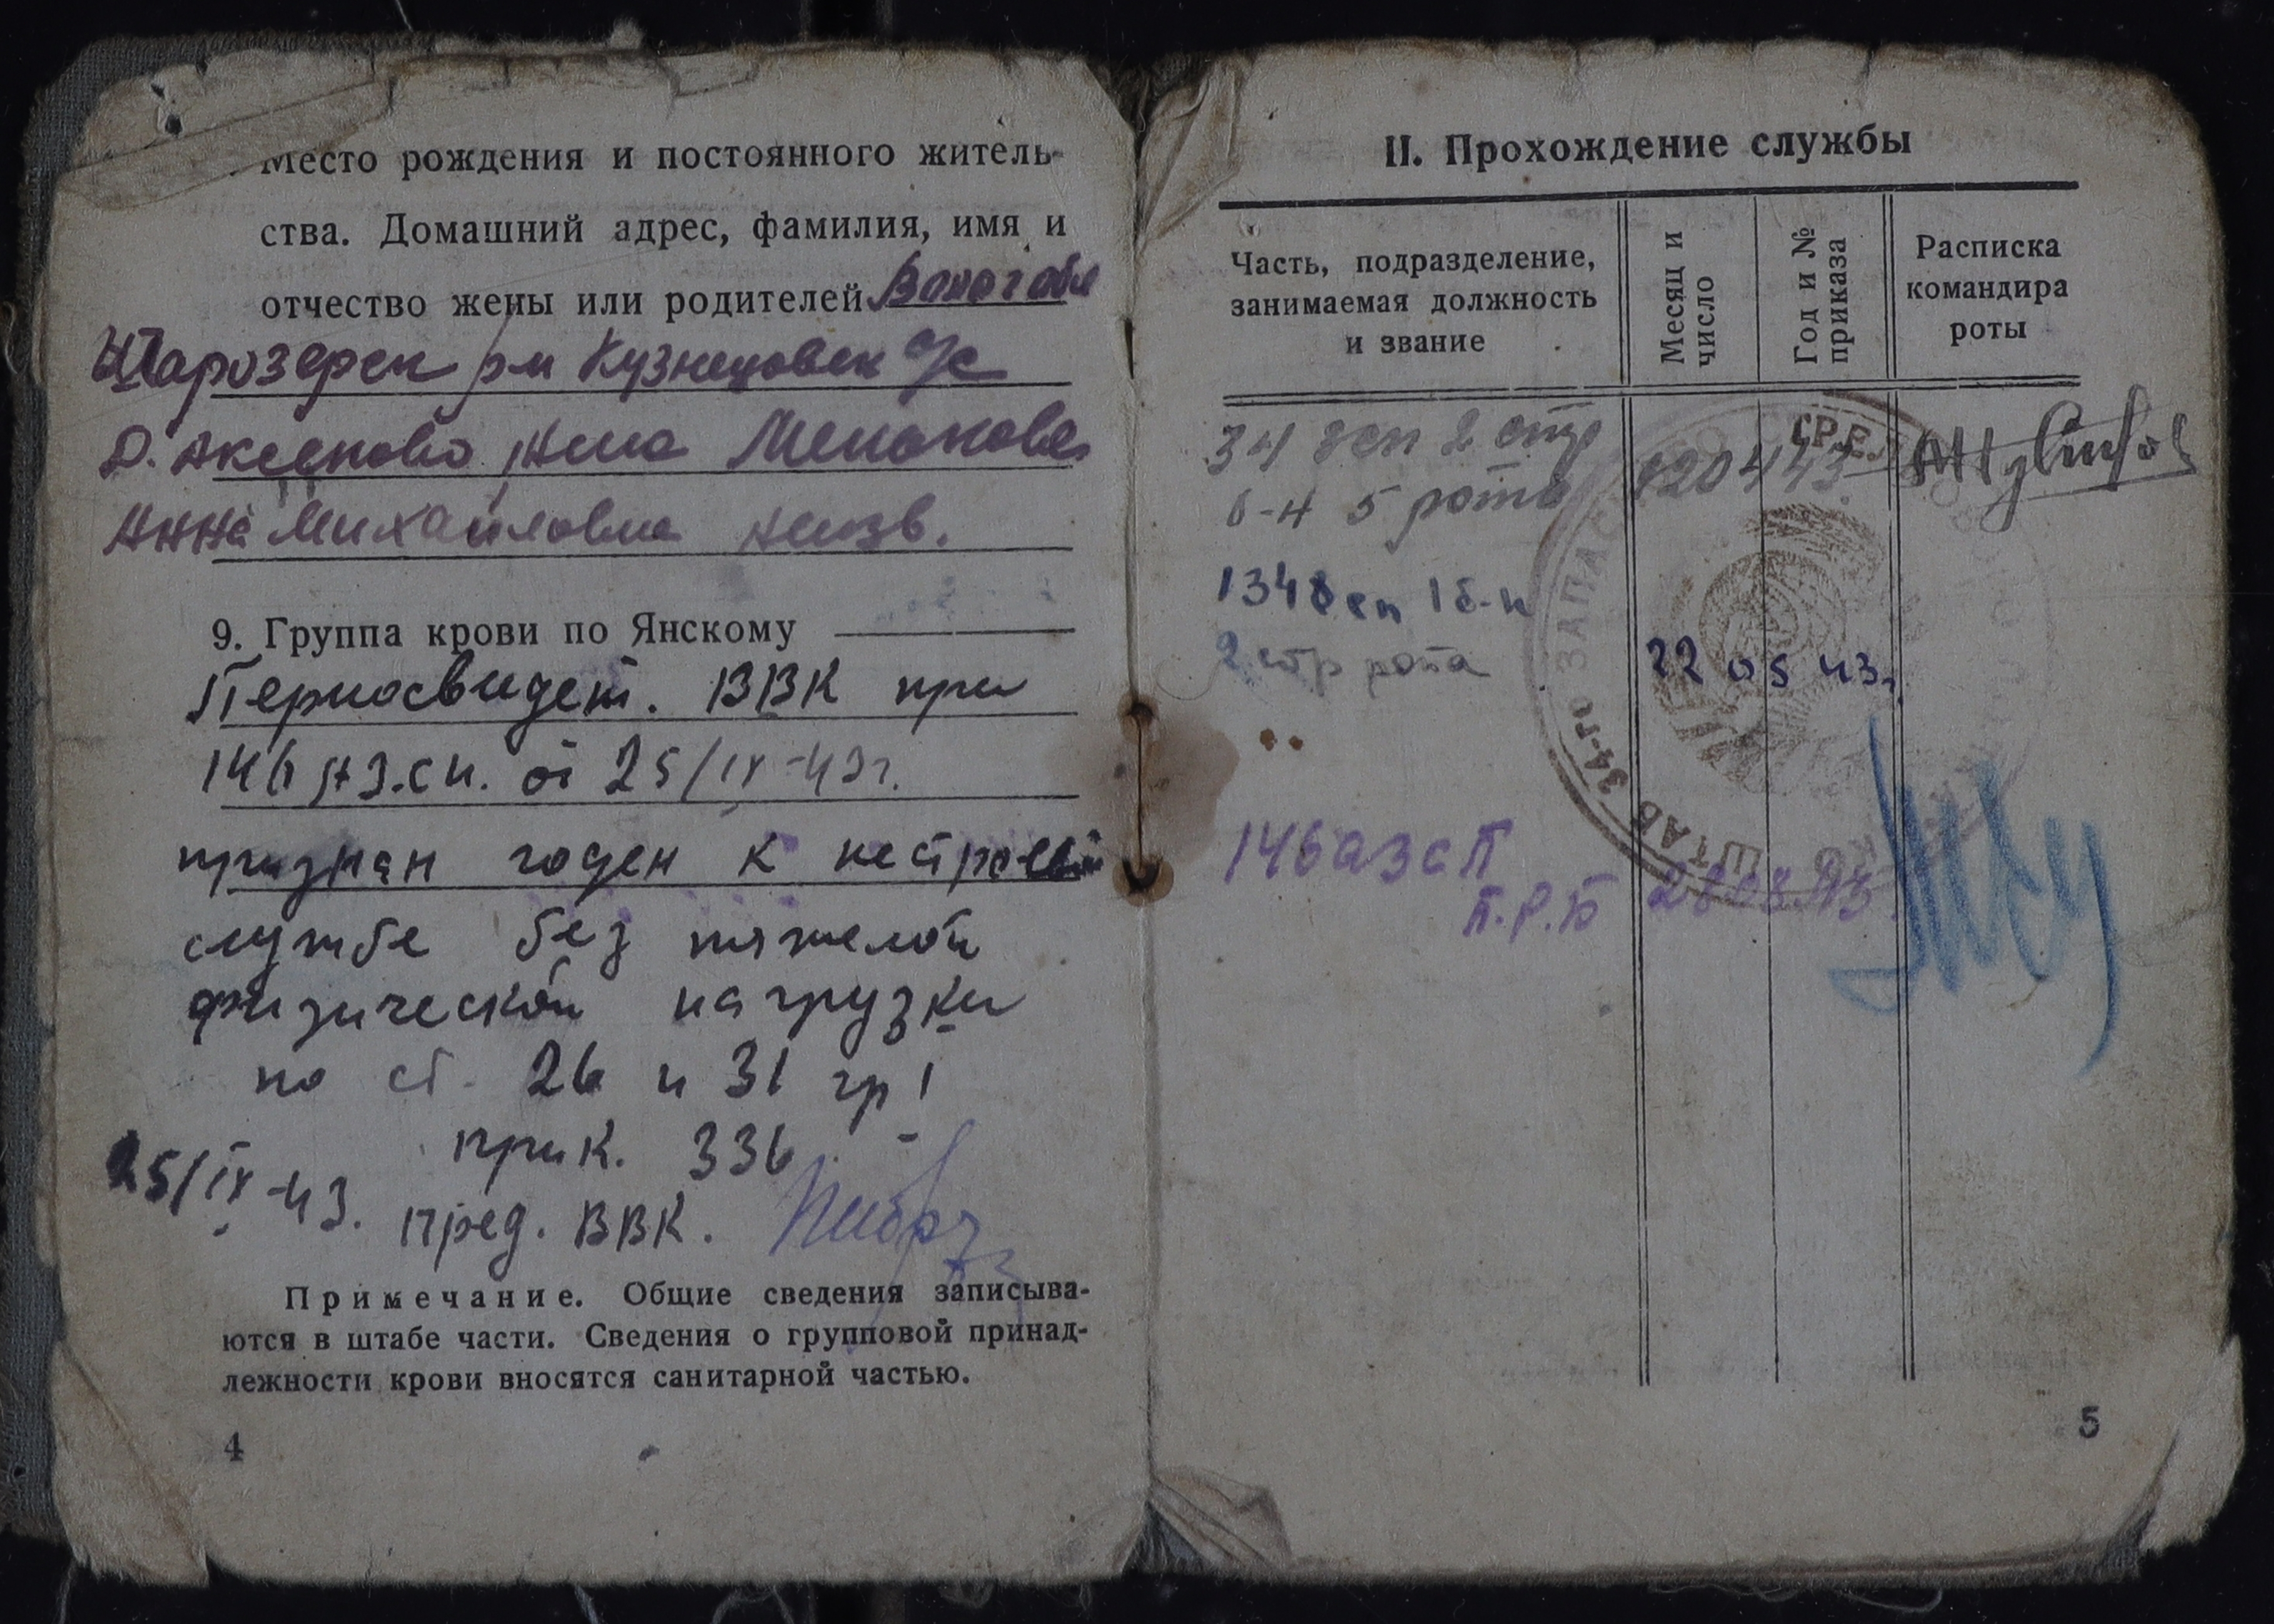 Место рождения и постоянного житель-
ства. Домашний адрес, фамилия, имя и
отчество жены или родителей Волог обл
Шарозерск р-н Кузнецовск с/с
д. Аксеново жена Менькова
Анна Михайловна
9. Группа крови по Янскому
Переосвидет. ВВК при
146 АЗ.СП. от 25/IX-43г.
признан годен к нестроевой
службе без тяжелой
физической нагрузки
по ст. 26 и 31 гр I
прик. 336
25/IX-43. пред. ВВК.
Примечание. Общие сведения записыва-
ются в штабе части. Сведения о групповой принад-
лежности крови вносятся санитарной частью.
4
II. Прохождение службы
Часть, подразделение,
занимаемая должность
и звание
Месяц и
число
Год и №
приказа
Расписка
командира
роты
34 зсп 2 стр
б-н 5 рота 120443
1348 сп 1 б-н
2 стр рота 22 05 43г
146 азсп
П.Р.Б 280843.
ШТАБ 34-го ЗАПАС СТР.
5